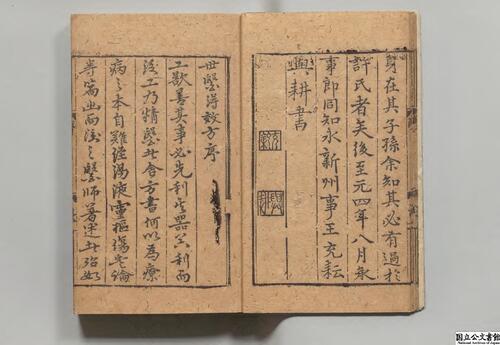 身在其子孫余知其必有過於
許氏者矣後至元四年八月承
事郎同知永新州事王充耘
與耕書
世醫得效方序
工欲善其事必先利其器〻利而
後工乃精醫者舍方書何以為療
病之本自難經湯液靈樞傷寒論
等篇出而後之醫師著述者殆如
国立公文書館
National Archives of Japan